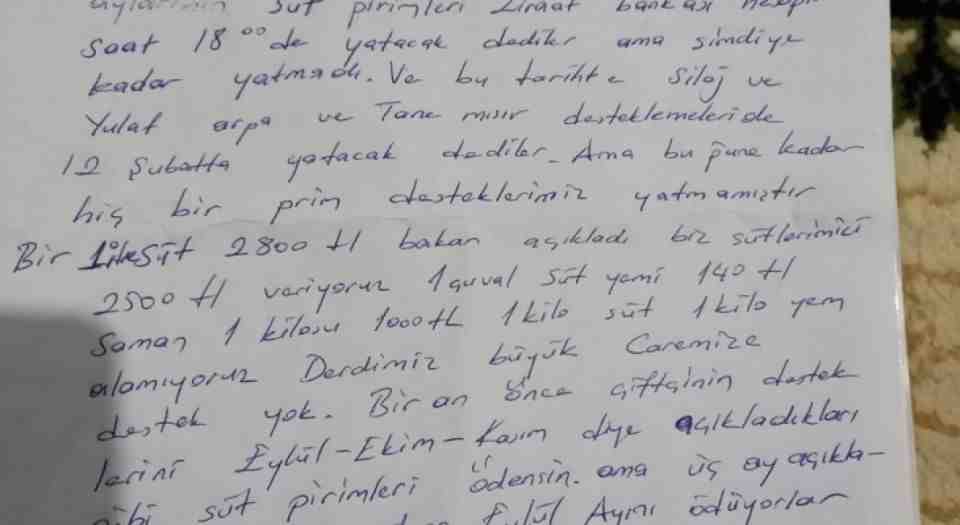 süt pirimleri Ziraat bankası
saat 18⁰⁰ de yatacak dediler ama şimdiye
kadar yatmadı. Ve bu tarihte Silaj ve
Yulaf arpa ve Tane mısır desteklemeleride
12 Şubatta yatacak dediler. Ama bu güne kadar
hiç bir prim desteklerimiz yatmamıştır
Bir litre Süt 2800 tl bakan açıkladı biz sütlerimizi
2500 tl veriyoruz 1 çuval süt yemi 140 tl
Saman 1 kilosu 1000 tl 1 kilo süt 1 kilo yem
alamıyoruz Derdimiz büyük Caremize
destek yok. Bir an önce çiftçinin destek
lerini Eylül-Ekim-Kasım diye açıkladıkları
gibi süt pirimleri ödensin. ama üç ay açıkla-
Eylül Ayını ödüyorlar